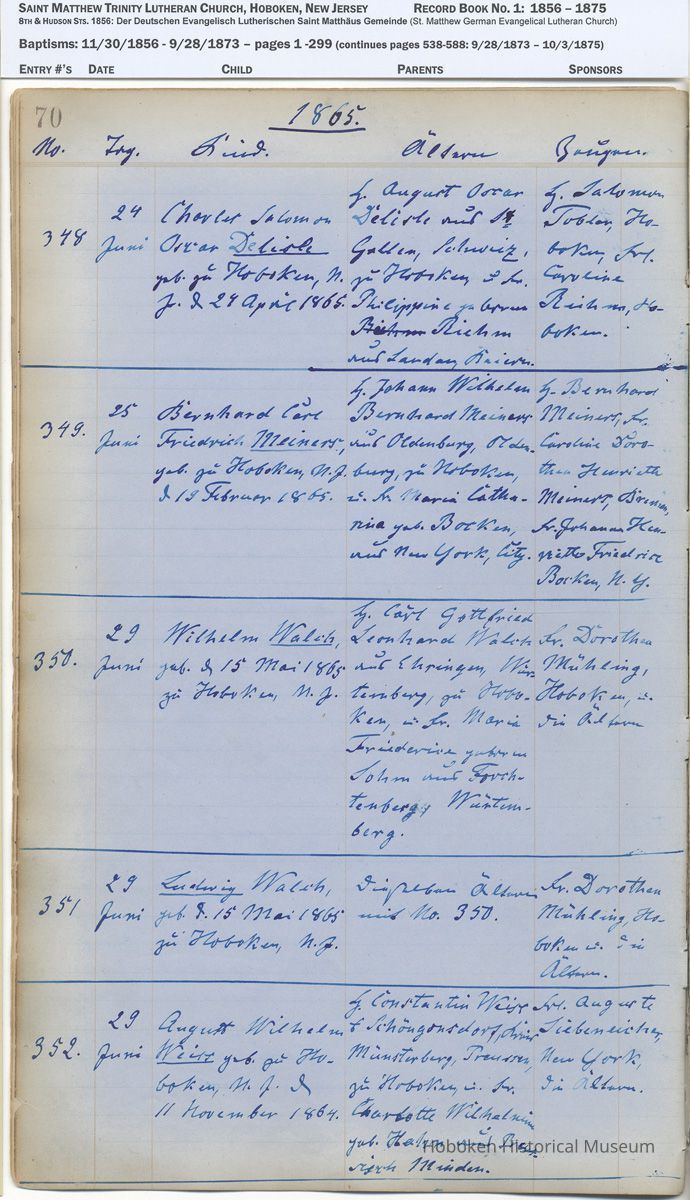 SAINT MATTHEW TRINITY LUTHERAN CHURCH, HOBOKEN, NEW JERSEY RECORD BOOK NO. 1: 1856 – 1875
8TH & HUDSON STS. 1856: Der Deutschen Evangelisch Lutherischen Saint Matthäus Gemeinde (St. Matthew German Evangelical Lutheran Church)
Baptisms: 11/30/1856 - 9/28/1873 – pages 1 -299 (continues pages 538-588: 9/28/1873 – 10/3/1875)
ENTRY #'S DATE CHILD PARENTS SPONSORS
70
1865.
No. Tag. Kind. Ältern Zeugen.
348
24
Juni
Charles Salomon
Oscar Delisle
geb. zu Hoboken, N.
J. d. 24 April 1865.
H. August Oscar
Delisle aus St
Gallen, Schweiz,
zu Hoboken, u. Fr.
Philippine geboren
Riehm
aus Landau, Baiern.
H. Salomon
Tobler, Ho-
boken, Frl.
Caroline
Riehm, Ho-
boken.
349.
25
Juni
Bernhard Carl
Friedrich Meiners,
geb. zu Hoboken, N.J.
d. 19 Februar 1865.
H. Johann Wilhelm
Bernhard Meiners
aus Oldenburg, Olden-
burg, zu Hoboken,
u. Fr. Maria Catha-
rina geb. Bocken,
aus New York, City.
H. Bernhard
Meiners, Fr.
Caroline Doro-
thea Henriette
Meiners, Bremen,
Fr. Johanna Hen-
riette Friedrice
Bocken, N. Y.
350.
29
Juni
Wilhelm Walch,
geb. d. 15 Mai 1865
zu Hoboken, N. J.
H. Carl Gottfried
Leonhard Walch
aus Ehringen, Wür
temberg, zu Hobo-
ken, u. Fr. Maria
Friederice geboren
Sohm aus Forch-
tenberg, Würtem-
berg.
Fr. Dorothea
Mühling,
Hoboken, u.
die Ältern
351
29
Juni
Ludwig Walch,
geb. d. 15 Mai 1865
zu Hoboken, N. J.
Dieselben Ältern
mit No. 350.
Fr. Dorothea
Mühling, Ho-
boken u. die
Ältern.
352.
29
Juni
August Wilhelm
Weiss geb. zu Ho-
boken, N. J. d.
11 November 1864.
H. Constantin Weiss
Münsterberg, Preussen,
zu Hoboken, u. Fr.
Charlotte Wilhelmine
geb. Hahn aus Preus-
sisch Minden.
Frl. Auguste
Siebeneicher,
New York,
die Ältern.
Hoboken Historical Museum